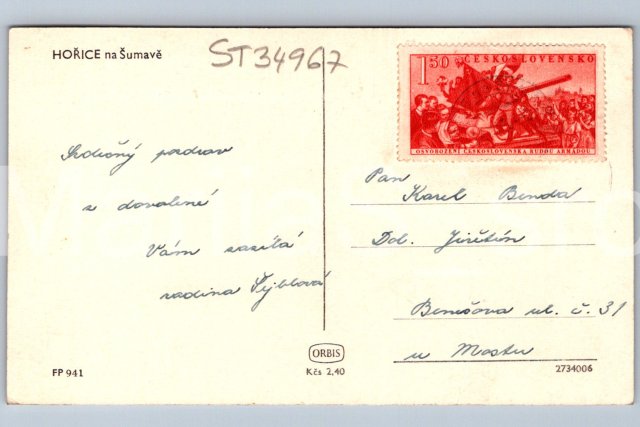 HOŘICE na Šumavě
ST34967
1.50 ČESKOSLOVENSKO
OSVOBOZENÍ ČESKOSLOVENSKA RUDOU ARMÁDOU
Srdečný pozdrav
z dovolené
Vám zasílá
rodina Šýblová
Pan
Karel Benda
Dol. Jiřetín
Benešova ul. č. 31
u Mostu
ORBIS
Kčs 2,40
FP 941
2734006